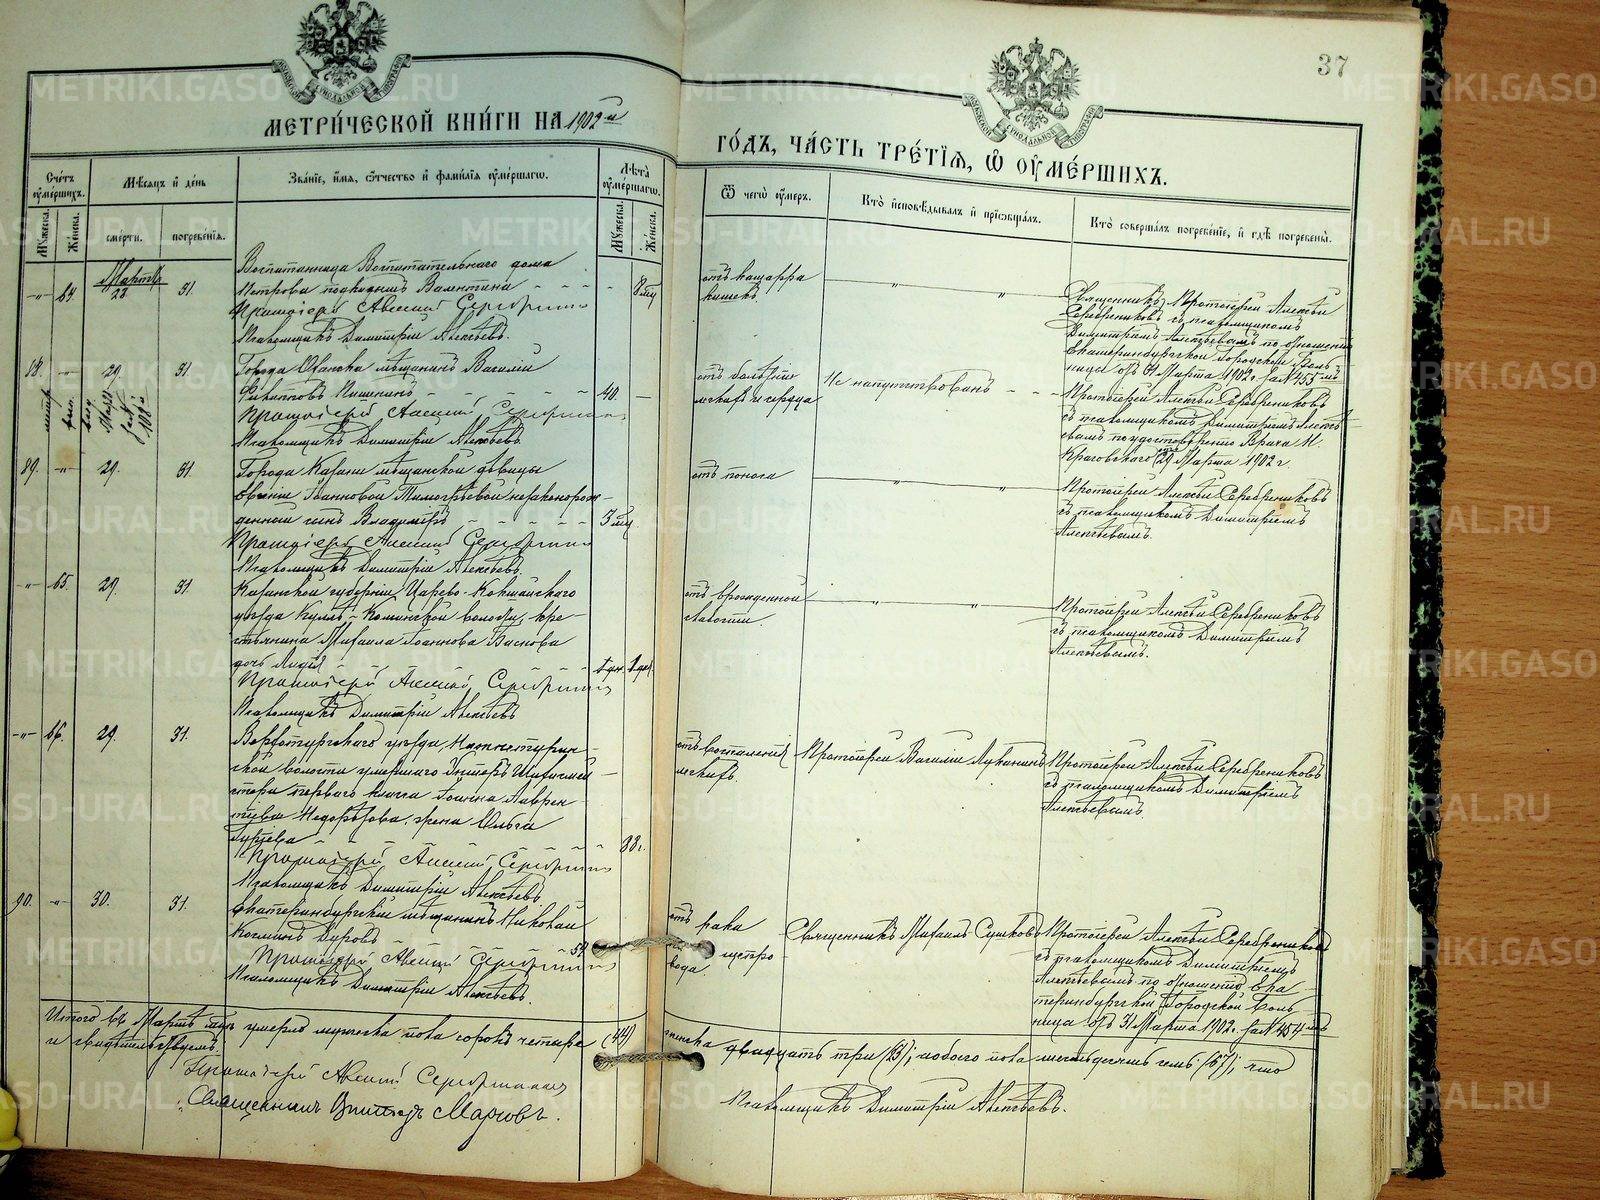 37
МЕТРИ́ЧЕСКОЙ КНИ́ГИ НА 1902й
ГО́ДЪ, ЧА́СТЬ ТРЕ́ТІѦ, Ѡ҆ ОУ҆МЕ́РШИХЪ.
Сче́тъ оу҆ме́ршихъ.
Мѣ́сяцъ и҆ де́нь
Зва́ніе, и҆́мя, ѻ҆́тчество и҆ фами́лія оу҆ме́ршагѡ.
Лѣ́та оу҆ме́ршагѡ.
Ѿ чегѡ̀ оу҆́меръ.
Кто̀ и҆сповѣ́дывалъ и҆ прїѡбща́лъ.
Кто̀ соверша́лъ погребе́нїе, и҆ гдѣ̀ погребены̀.
Мꙋ́жеска.
Же́нска.
сме́рти.
погребе́нїя.
Мꙋ́жеска.
Же́нска.
64. Марта 28 31.
Воспитанница Воспитательнаго дома
Петрова подкидышъ Валентина
Протоіерей Алексій Серебренниковъ
Псаломщикъ Димитрій Алексѣевъ.
отъ катарра
кишекъ.
Священникъ Протоіерей Алексѣй
Серебрениковъ съ псаломщикомъ
Димитріемъ Алексѣевымъ по отношенію
Екатеринбургской Городской Боль-
ницы отъ 31 Марта 1902 г. за № 453мъ
88. 29. 31.
Города Оханска мѣщанинъ Василій
40.
Протоіерей Алексій Серебренниковъ
Псаломщикъ Димитрій Алексѣевъ.
отъ болѣзни
сердца
Не напутствованъ
Протоіерей Алексѣй Серебрениковъ
съ псаломщикомъ Димитріемъ Алексѣ-
евымъ по удостовѣренію Врача
29 Марта 1902 г.
89. 29. 31.
Города Казани мѣщанской дѣвицы
Евгеніи Іоанновой незаконорож-
денный сынъ Владиміръ
3 мц.
Протоіерей Алексій Серебренниковъ
Псаломщикъ Димитрій Алексѣевъ.
отъ поноса
Протоіерей Алексѣй Серебрениковъ
съ псаломщикомъ Димитріемъ
Алексѣевымъ.
65. 29. 31.
Казанской губерніи Царево-Кокшайскаго
уѣзда волости, кре-
стьянина Михаила Іоаннова
дочь Лидія
1 дня.
Протоіерей Алексій Серебренниковъ
Псаломщикъ Димитрій Алексѣевъ
отъ врожденной
слабости.
Протоіерей Алексѣй Серебрениковъ
съ псаломщикомъ Димитріемъ
Алексѣевымъ.
66. 29. 31.
Верхотурскаго уѣзда Нижнетурин-
ской волости умершаго Унтеръ Шихтмей-
стера перваго класса Іоанна Лаврен-
тіева жена Ольга
Гурьева
88 г.
Протоіерей Алексій Серебренниковъ
Псаломщикъ Димитрій Алексѣевъ
отъ воспаленія
легкихъ.
Протоіерей Василій Луканинъ
Протоіерей Алексѣй Серебрениковъ
съ псаломщикомъ Димитріемъ
Алексѣевымъ.
90. 30. 31.
Екатеринбургскій мѣщанинъ Николай
Козминъ Дуровъ
Протоіерей Алексій Серебренниковъ
Псаломщикъ Димитрій Алексѣевъ.
отъ рака
пищево
вода
Священникъ Михаилъ Сушковъ
Протоіерей Алексѣй Серебрениковъ
съ псаломщикомъ Димитріемъ
Алексѣевымъ по отношенію Ека-
теринбургской Городской Боль-
ницы отъ 31 Марта 1902 г. за № 454мъ
Итого въ Мартѣ мцѣ умерло мужеска пола сорокъ четыре (44) женска двадцать три (23); обоего пола шестьдесятъ семь (67); что
и свидѣтельствуемъ:
Протоіерей Алексій Серебренниковъ
Священникъ
Псаломщикъ Димитрій Алексѣевъ.
METRIKI.GASO-URAL.RU